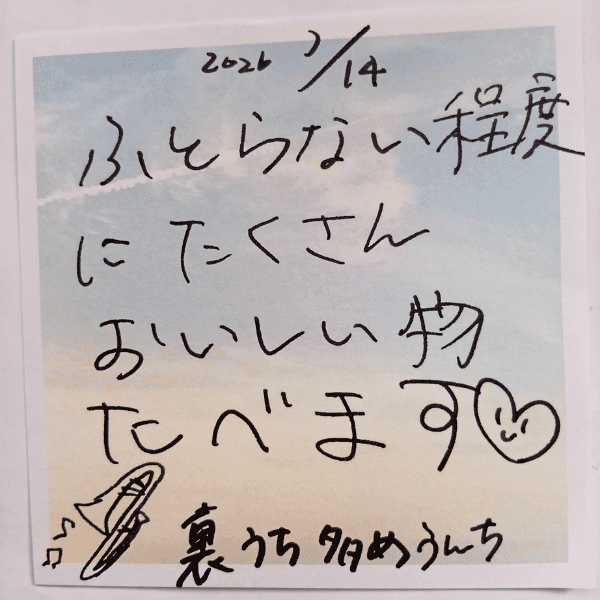 2026 7/14
ふとらない程度
にたくさん
おいしい物
たべます
裏うち多めうんち